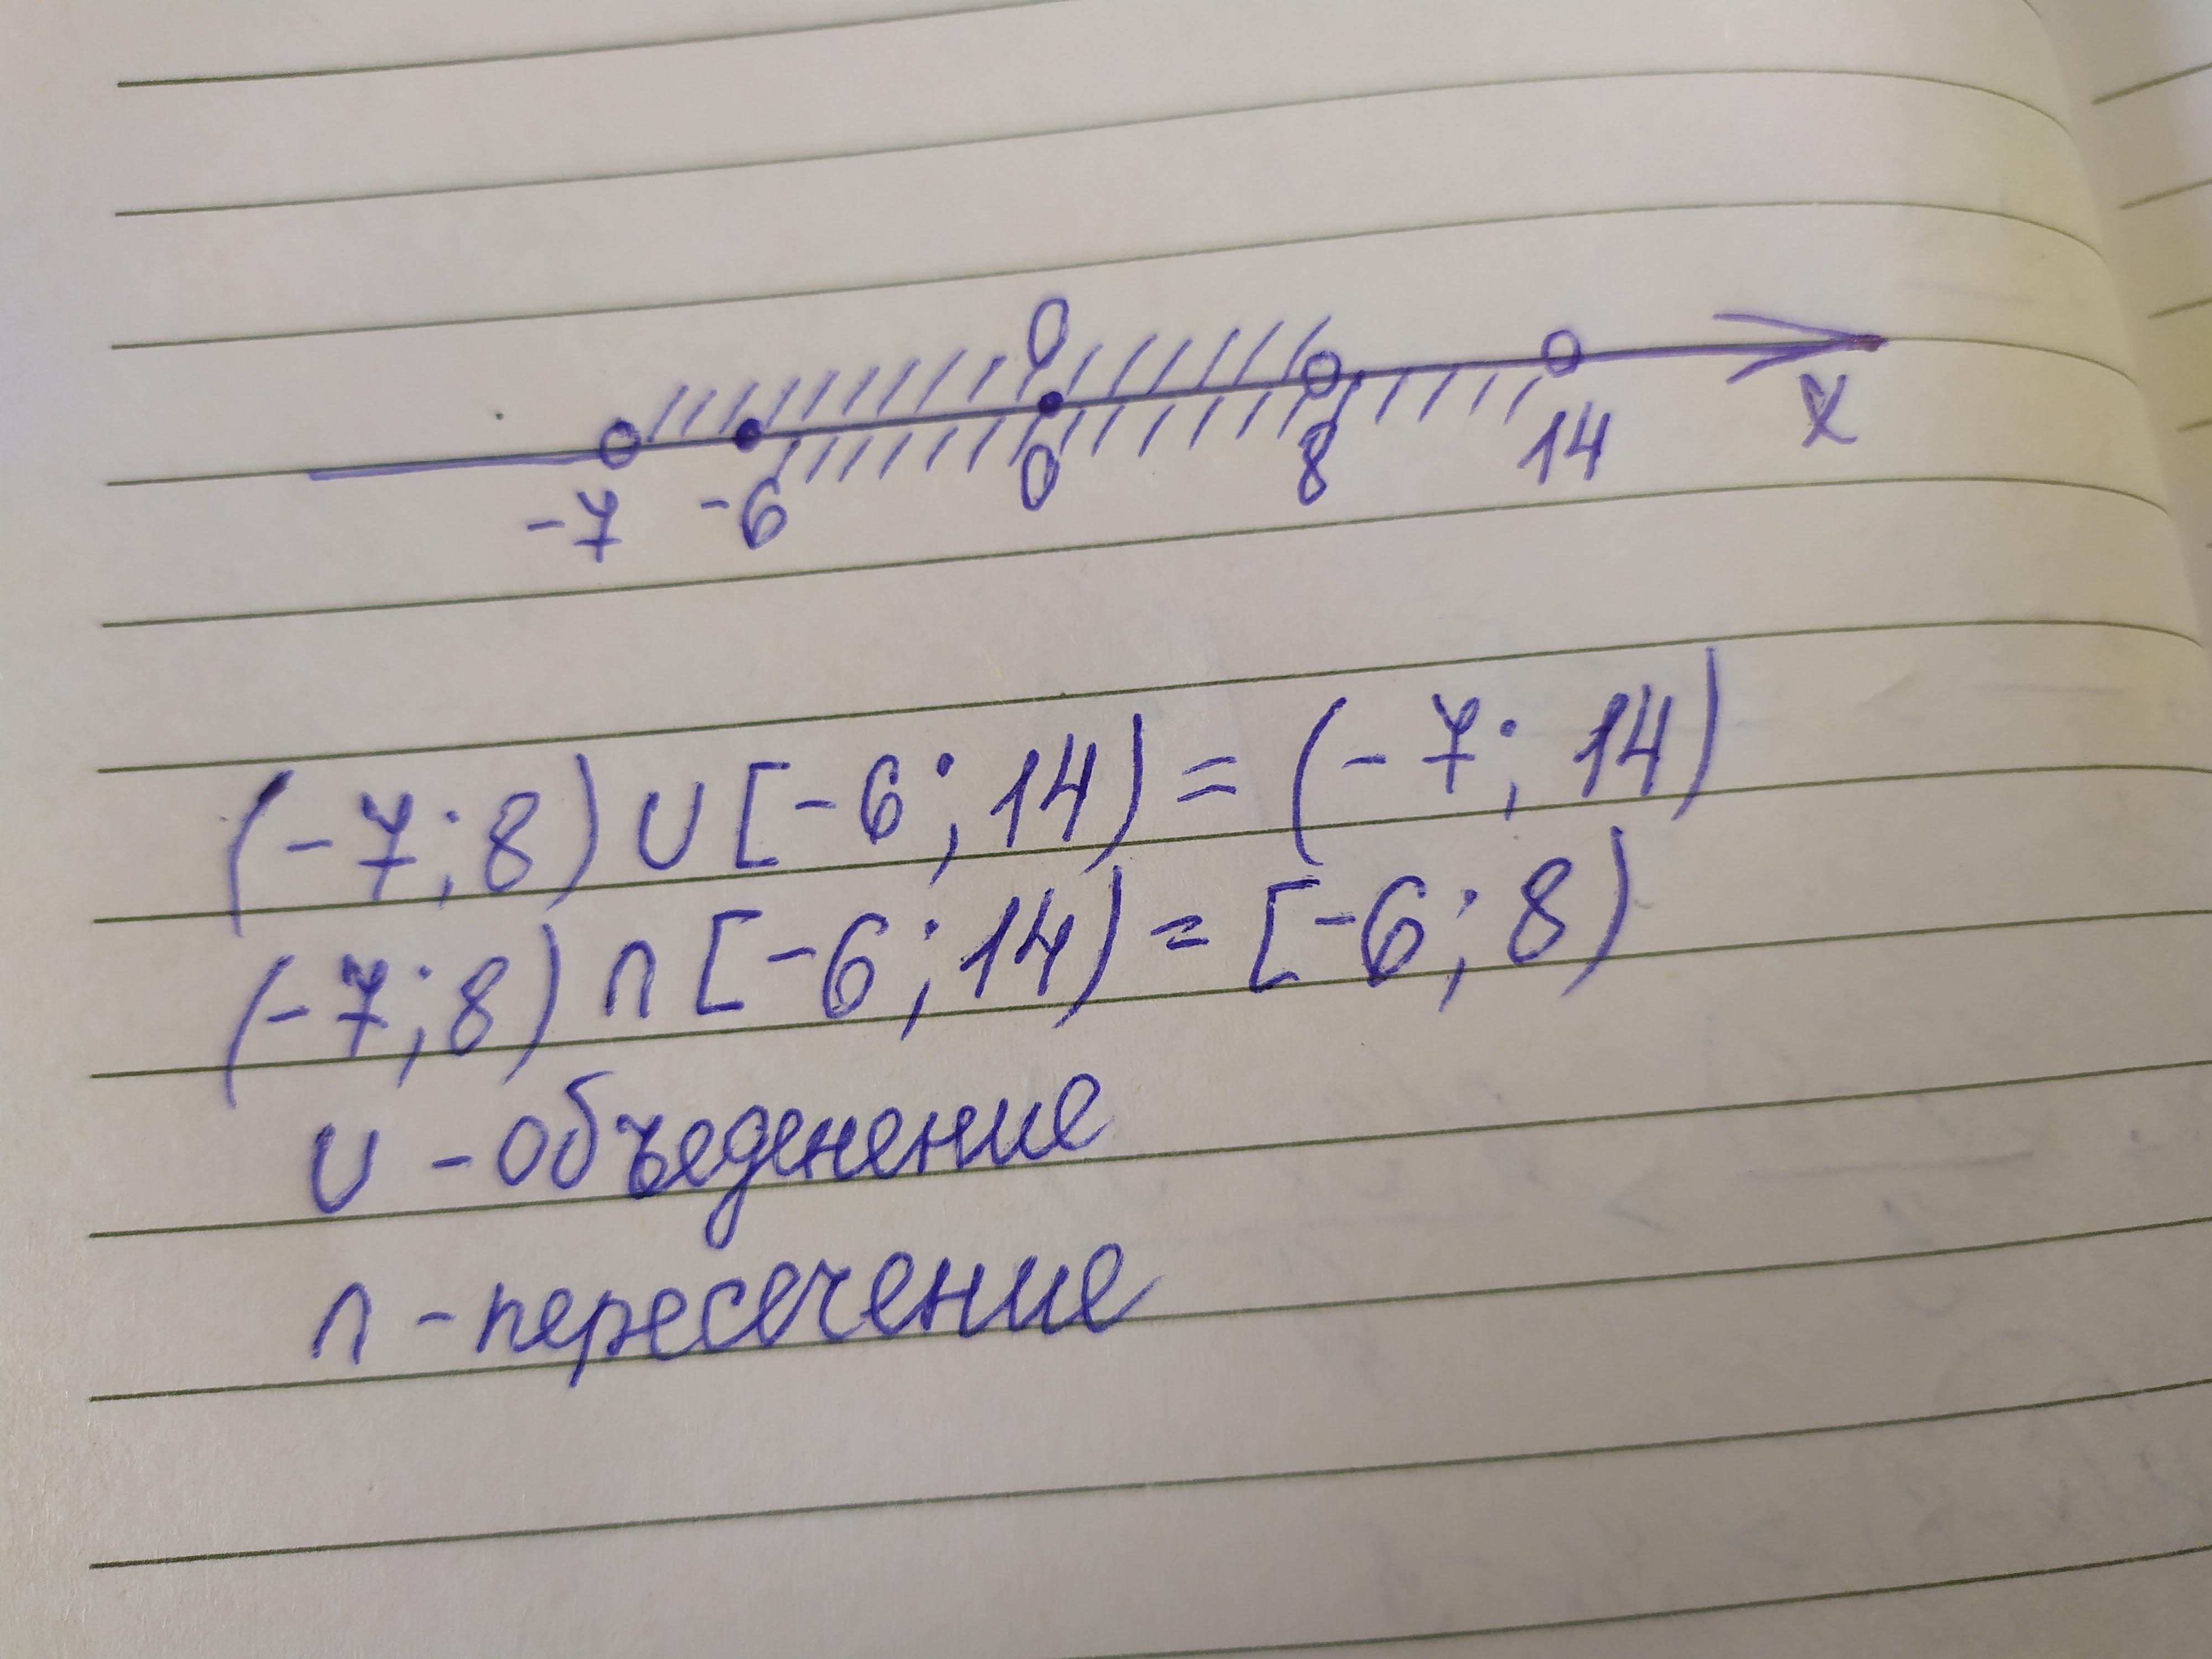 0
-7 -6 0 8 14 x
(-7;8) ∪ [-6;14) = (-7;14)
(-7;8) ∩ [-6;14) = [-6;8)
∪ - объеденение
∩ - пересечение